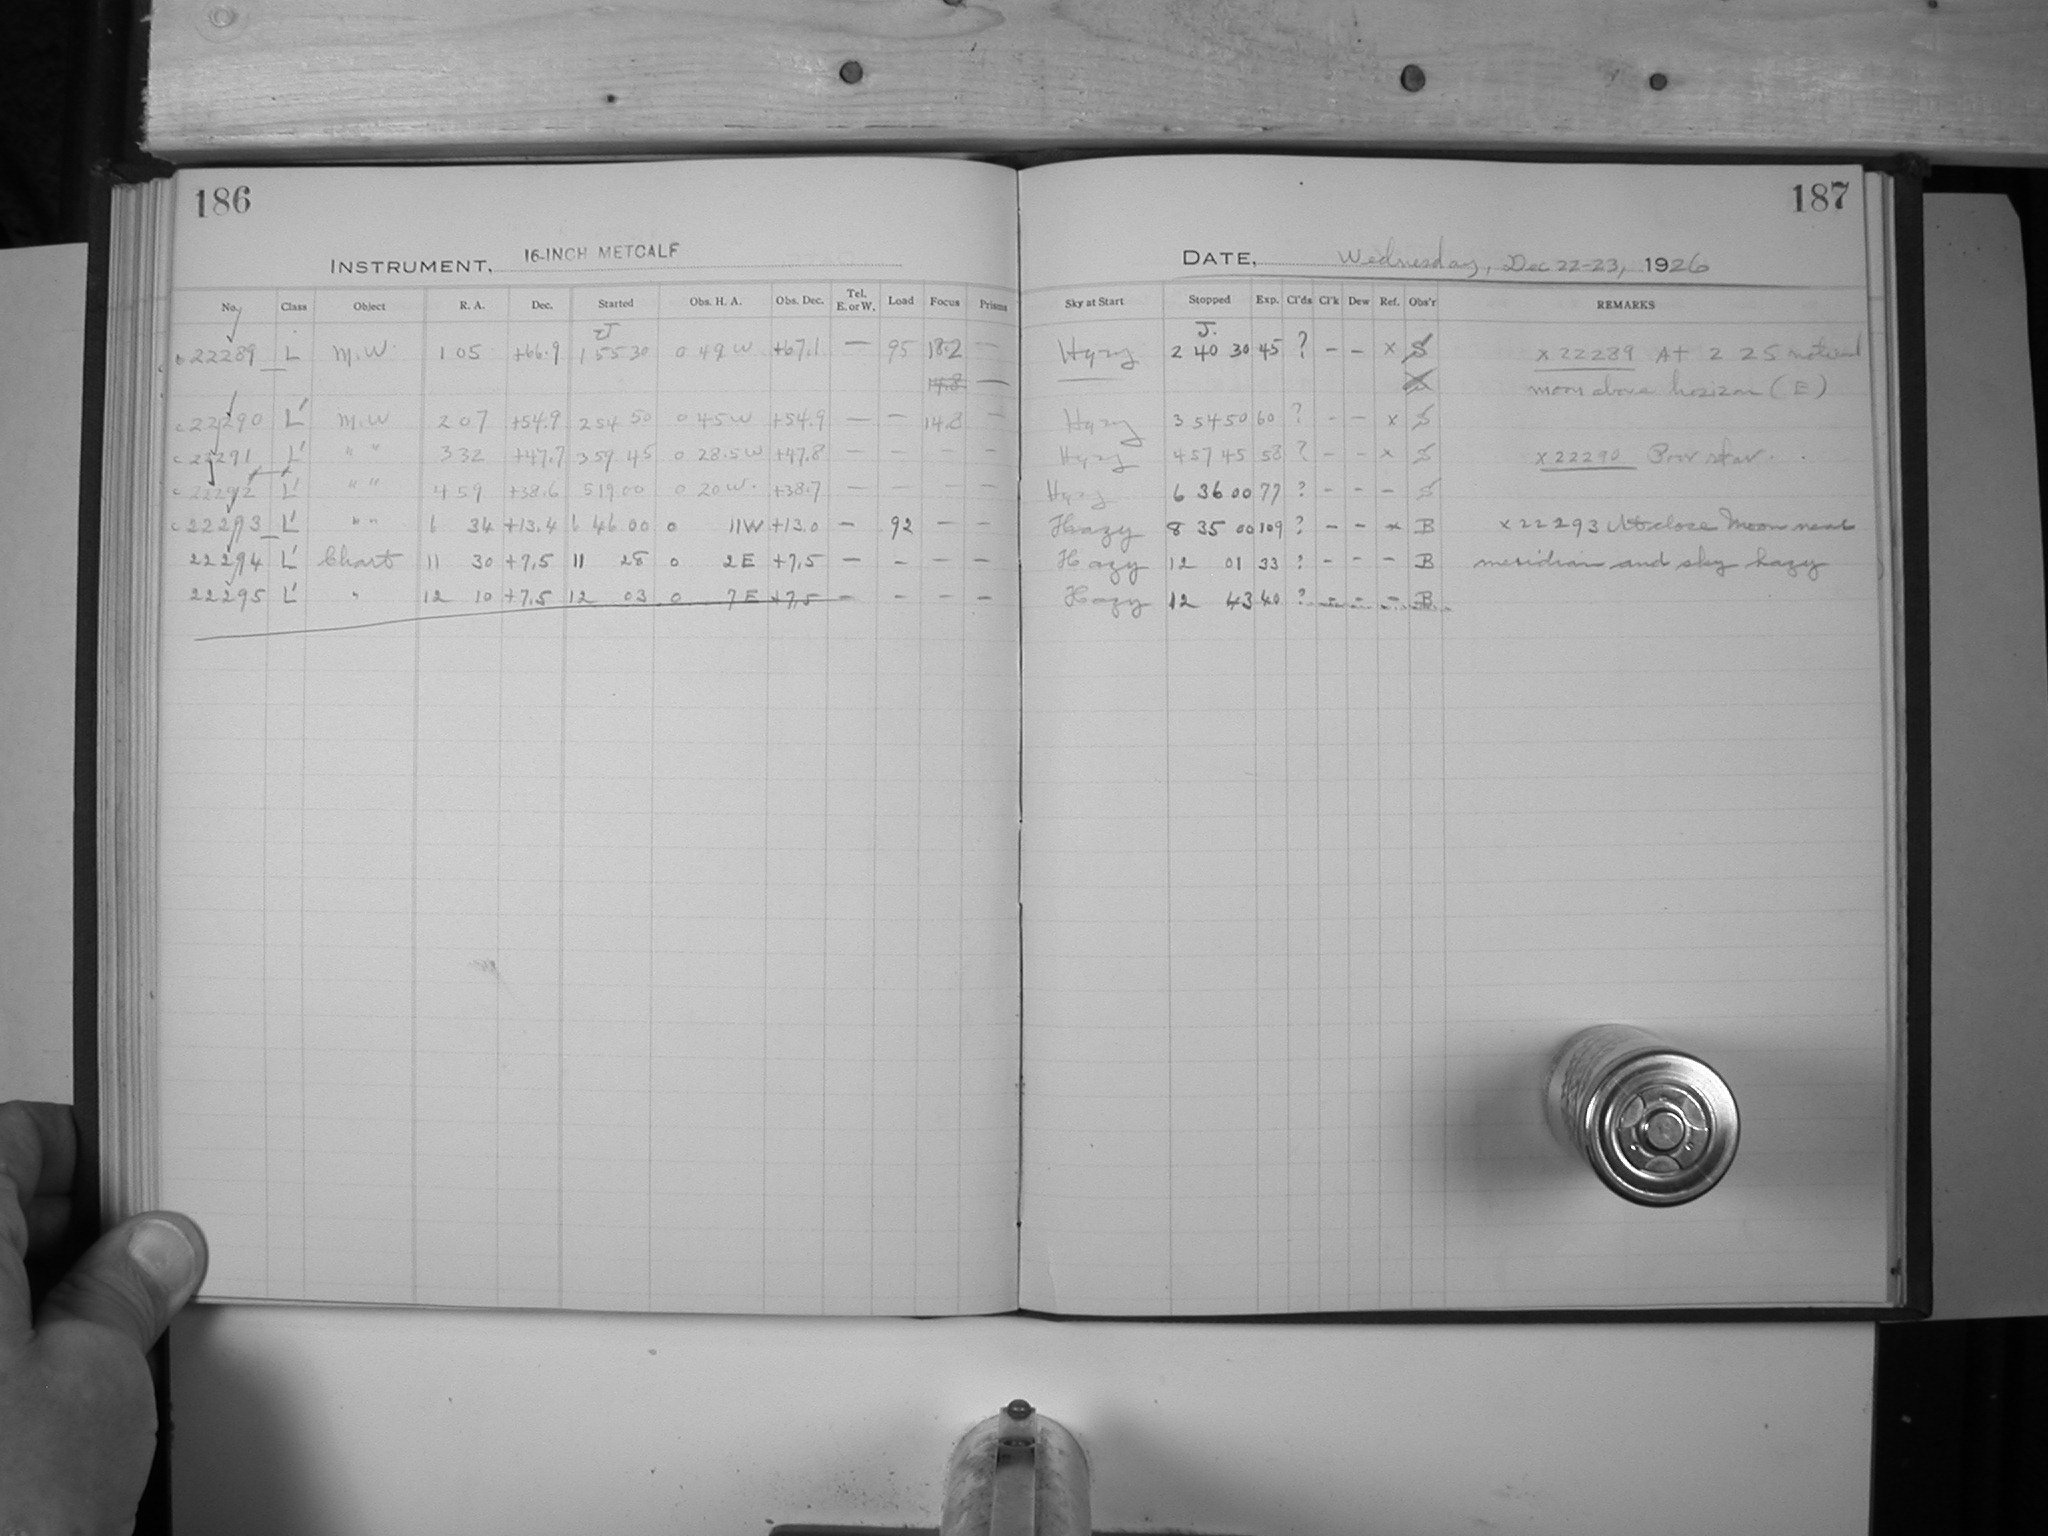 186
INSTRUMENT, 16-INCH METCALF
No. Class Object R. A. Dec. Started Obs. H. A. Obs. Dec. Tel. E. or W. Load Focus Prisms
J
c 22289 L M.W. 1 05 +66.9 1 55 30 0 49 W +67.1 — 95 18.2 —
14.8 —
c 22290 L' M.W 2 07 +54.9 2 54 50 0 45 W +54.9 — — 14.8 —
c 22291 L' " " 3 32 +47.7 3 59 45 0 28.5 W +47.8 — — — —
c 22292 L' " " 4 59 +38.6 5 19 00 0 20 W. +38.7 — — — —
c 22293 L' " " 6 34 +13.4 6 46 00 0 11 W +13.0 — 92 — —
22294 L' Chart 11 30 +7.5 11 28 0 2 E +7.5 — — — —
22295 L' " 12 10 +7.5 12 03 0 7 E +7.5 — — — —
187
DATE, Wednesday, Dec 22-23, 1926
Sky at Start Stopped Exp. Cl'ds Cl'k Dew Ref. Obs'r REMARKS
J.
Hazy 2 40 30 45 ? — — x S x 22289 At 2 25 noticed
moon above horizon (E)
Hazy 3 54 50 60 ? — — x S
Hazy 4 57 45 58 ? — — x S x 22290 Poor star.
Hazy 6 36 00 77 ? — — — S
Hazy 8 35 00 109 ? — — x B x 22293 At close Moon near
Hazy 12 01 33 ? — — — B meridian and sky hazy
Hazy 12 43 40 ? — — — B